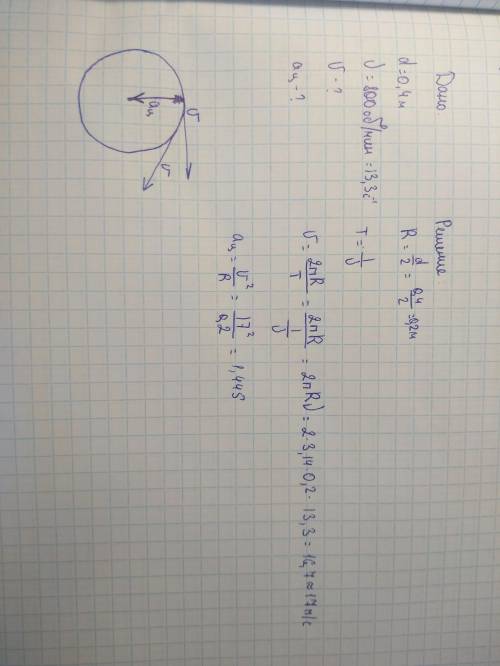 Дано
d=0,4м
ν=800об/мин=13,3с⁻¹
υ-?
aц-?
Решение
R=d/2=0,4/2=0,2м
T=1/ν
υ=2πR/T=2πR/(1/ν)=2πRν=2·3,14·0,2·13,3=16,7≈17м/с
aц=υ²/R=17²/0,2=1,445
υ
aц
υ